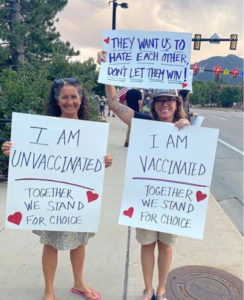 THEY WANT US TO
HATE EACH OTHER.
DON'T LET THEM WIN!
I AM
UNVACCINATED
TOGETHER
WE STAND
FOR CHOICE
I AM
VACCINATED
TOGETHER
WE STAND
FOR CHOICE